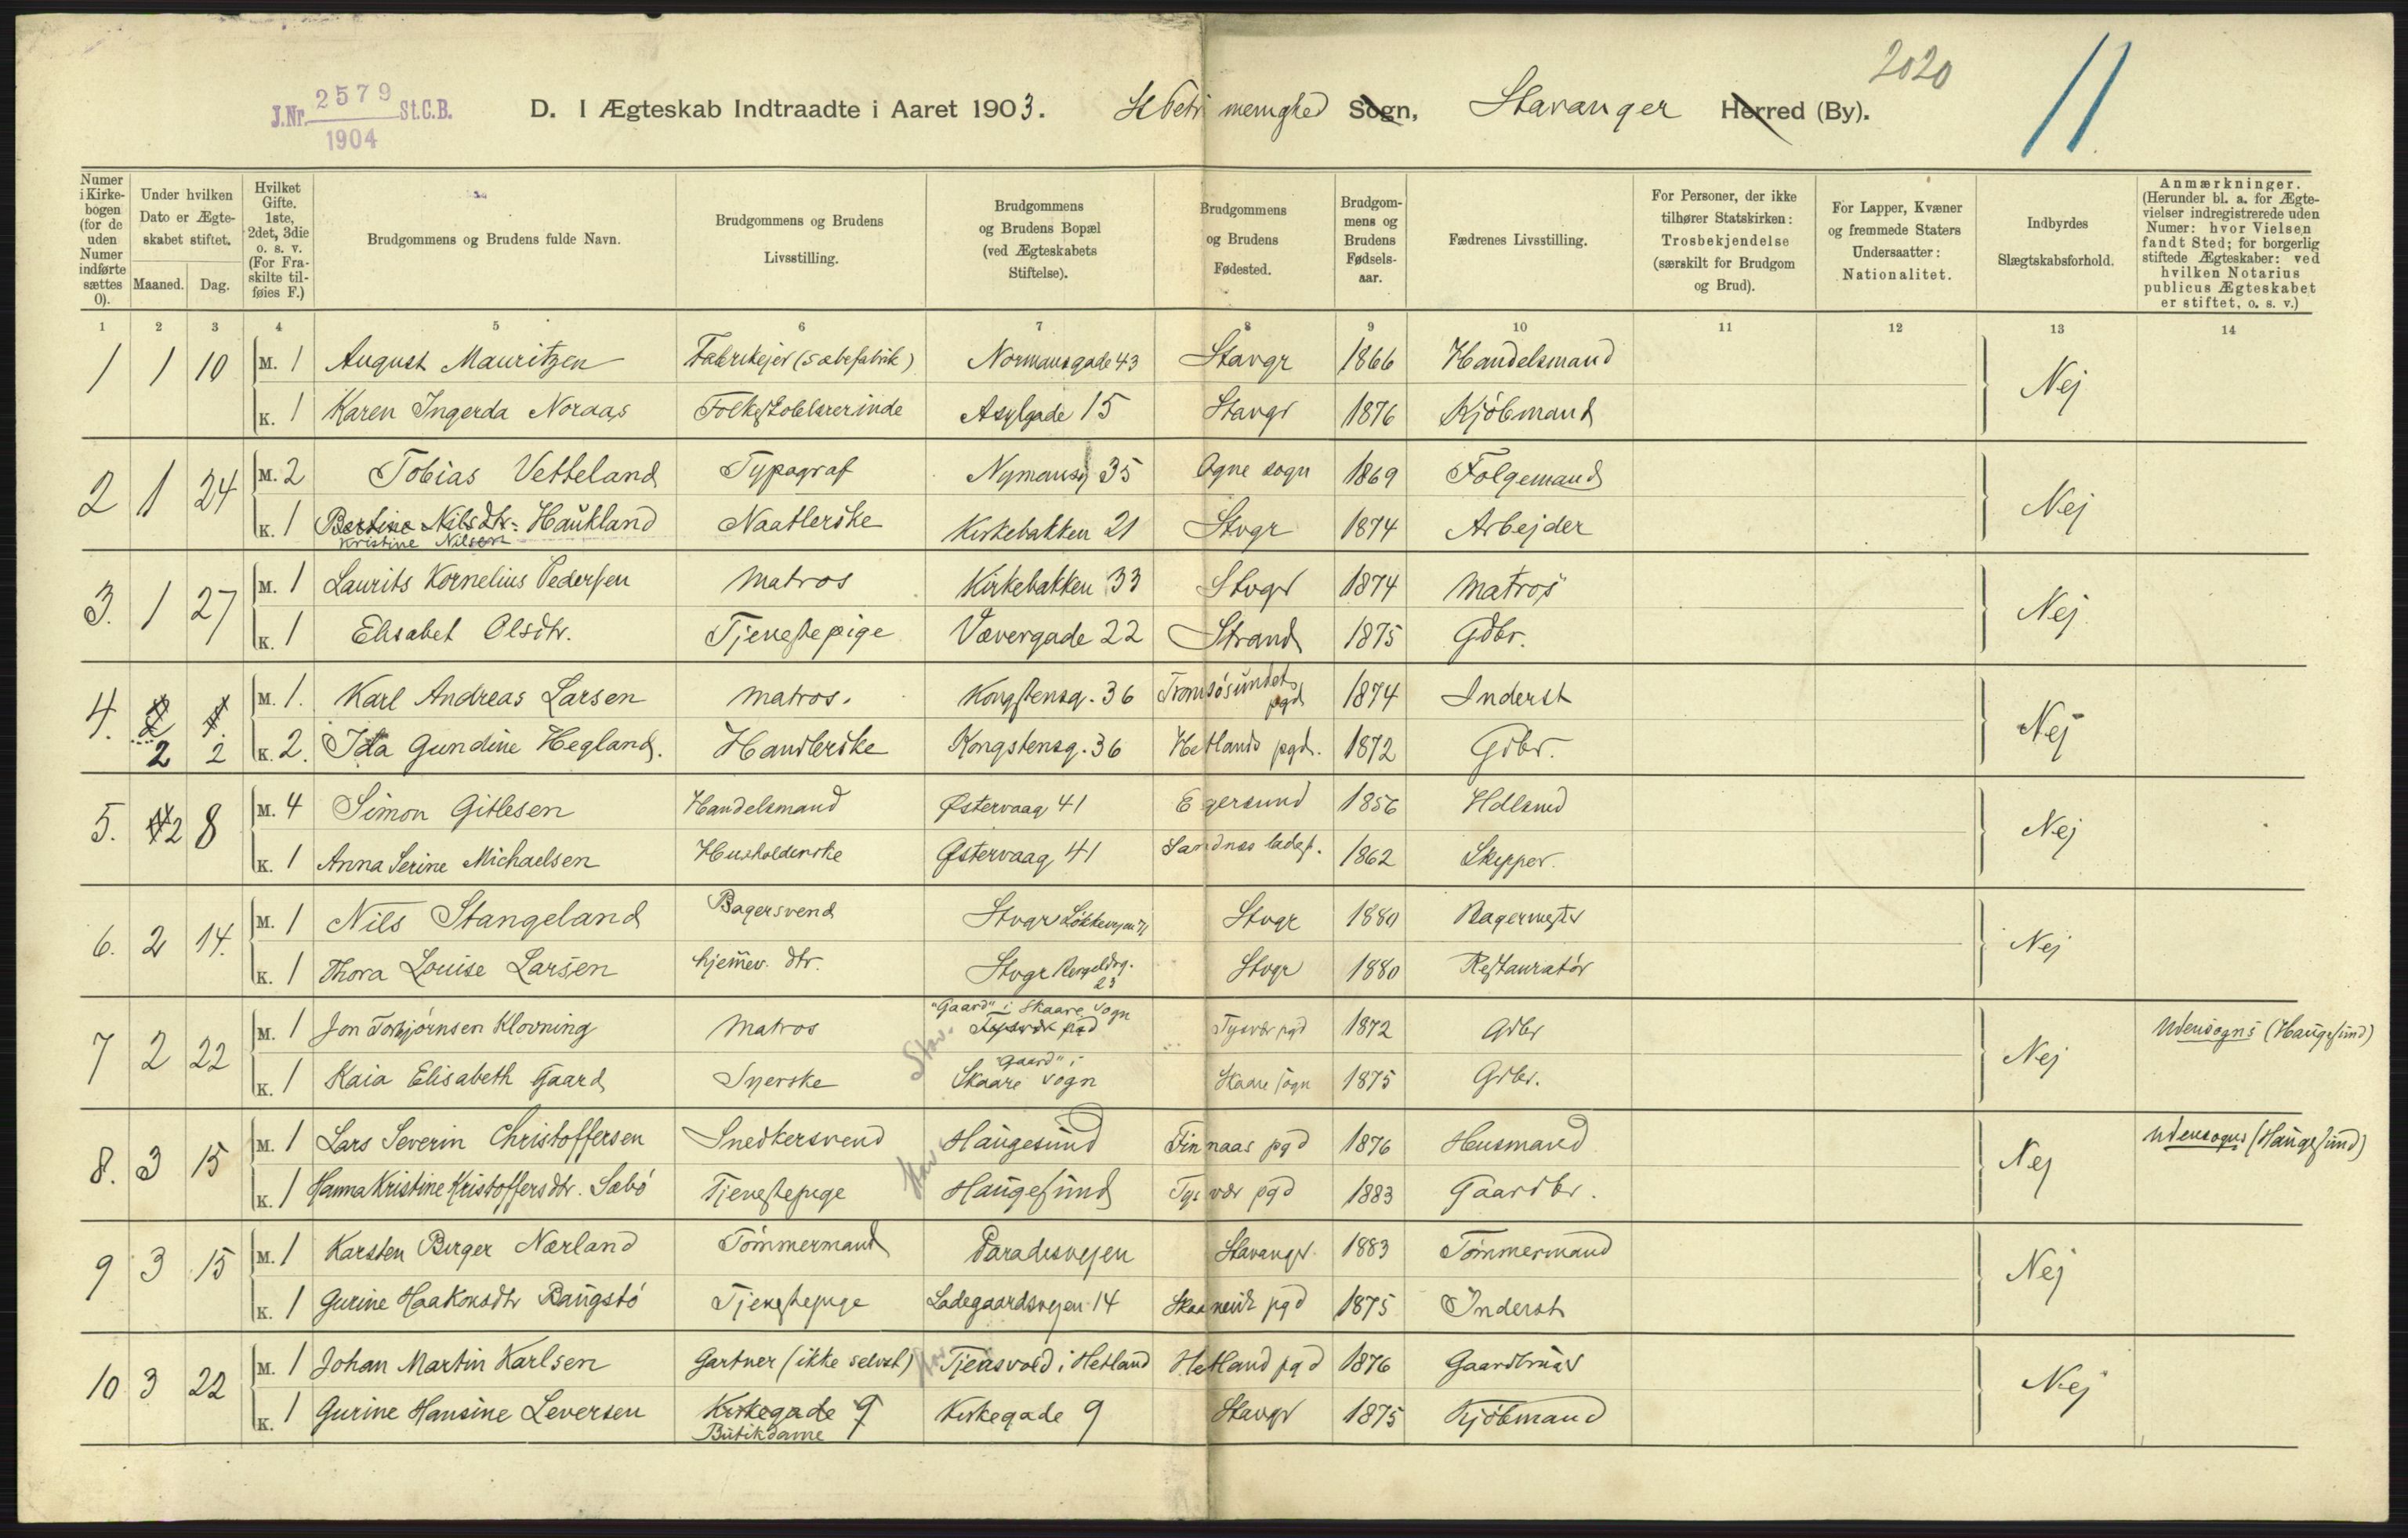 2020
11
J.Nr. 2579 St.C.B.
1904
D. I Ægteskab Indtraadte i Aaret 1903. St Petri menighed Sogn, Stavanger Herred (By).
Numer i Kirkebogen (for de uden Numer indførte sættes 0).
Under hvilken Dato er Ægteskabet stiftet.
Maaned. Dag.
Hvilket Gifte. 1ste, 2det, 3die o. s. v. (For Fraskilte tilføies F.)
Brudgommens og Brudens fulde Navn.
Brudgommens og Brudens Livsstilling.
Brudgommens og Brudens Bopæl (ved Ægteskabets Stiftelse).
Brudgommens og Brudens Fødested.
Brudgommens og Brudens Fødselsaar.
Fædrenes Livsstilling.
For Personer, der ikke tilhører Statskirken: Trosbekjendelse (særskilt for Brudgom og Brud).
For Lapper, Kvæner og fremmede Staters Undersaatter: Nationalitet.
Indbyrdes Slægtskabsforhold.
Anmærkninger. (Herunder bl. a. for Ægtevielser indregistrerede uden Numer: hvor Vielsen fandt Sted; for borgerlig stiftede Ægteskaber: ved hvilken Notarius publicus Ægteskabet er stiftet, o. s. v.)
1 2 3 4 5 6 7 8 9 10 11 12 13 14
1 1 10 M. 1 August Mauritzen Fabrikejer (sæbefabrik) Normansgade 43 Stavgr 1866 Handelsmand Nej
K. 1 Karen Ingerda Noraas Folkeskolelærerinde Asylgade 15 Stavgr 1876 Kjøbmand
2 1 24 M. 2 Tobias Vetteland Typograf Nymansg 35 Ogne sogn 1869 Følgemand Nej
K. 1 Bertine Nilsdtr. Haukland Naatlerske Kirkebakken 21 Stvgr 1874 Arbejder
Kristine Nilsen
3. 1 27 M. 1 Laurits Kornelius Pedersen Matros Kirkebakken 33 Stvgr 1874 Matros Nej
K. 1 Elisabet Olsdtr. Tjenestepige Vævergade 22 Strand 1875 Gdbr.
4. M. 1. Karl Andreas Larsen Matros. Kongstensg. 36 Tromsøsundets pgd 1874 Inderst Nej
2 2 K. 2. Ida Gundine Hegland. Handlerske Kongstensg. 36 Hetlands pgd. 1872 Gdbr.
5. 2 8 M. 4 Simon Gitlesen Handelsmand Østervaag 41 Egersund 1856 Hdlsmd Nej
K. 1 Anna Serine Michaelsen Husholderske Østervaag 41 Sandnes ladest. 1862 Skipper.
6. 2 14. M. 1 Nils Stangeland Bagersvend Stvgr Løkkevejen 71 Stvgr 1880 Bagermester Nej
K. 1 Thora Louise Larsen hjemmev. dtr. Stvgr Bergeldsg. 23 Stvgr 1880 Restauratør
7 2 22 M. 1 Jon Torbjørnsen Klovning Matros "Gaard" i Skaare sogn Tysvær pgd Tysvær pgd 1872 Gdbr Nej Udensogns (Haugesund)
Stav.
K. 1 Kaia Elisabeth Gaard Syerske "Gaard" i Skaare sogn Skaare sogn 1875 Gdbr.
8. 3 15 M. 1 Lars Severin Christoffersen Snedkersvend Haugesund Finnaas pgd 1876 Husmand Nej Udensogns (Haugesund)
Stav
K. 1 Hanna Kristine Kristoffersdtr. Sæbø Tjenestepige Haugesund Tysvær pgd 1883 Gaardbr.
9 3 15 M. 1 Karsten Birger Nærland Tømmermand Paradisvejen Stavangr 1883 Tømmermand Nej
K. 1 Gurine Haakonsdtr Baugstø Tjenestepige Ladegaardsvejen 14 Skaanevik pgd 1875 Inderst
10 3 22 M. 1 Johan Martin Karlsen Gartner (ikke selvst) Tjensvold i Hetland Hetland pgd 1876 Gaardbruger Nej
K. 1 Gurine Hansine Leversen Kirkegade 9 Kirkegade 9 Stavgr 1875 Kjøbmand
Butikdame